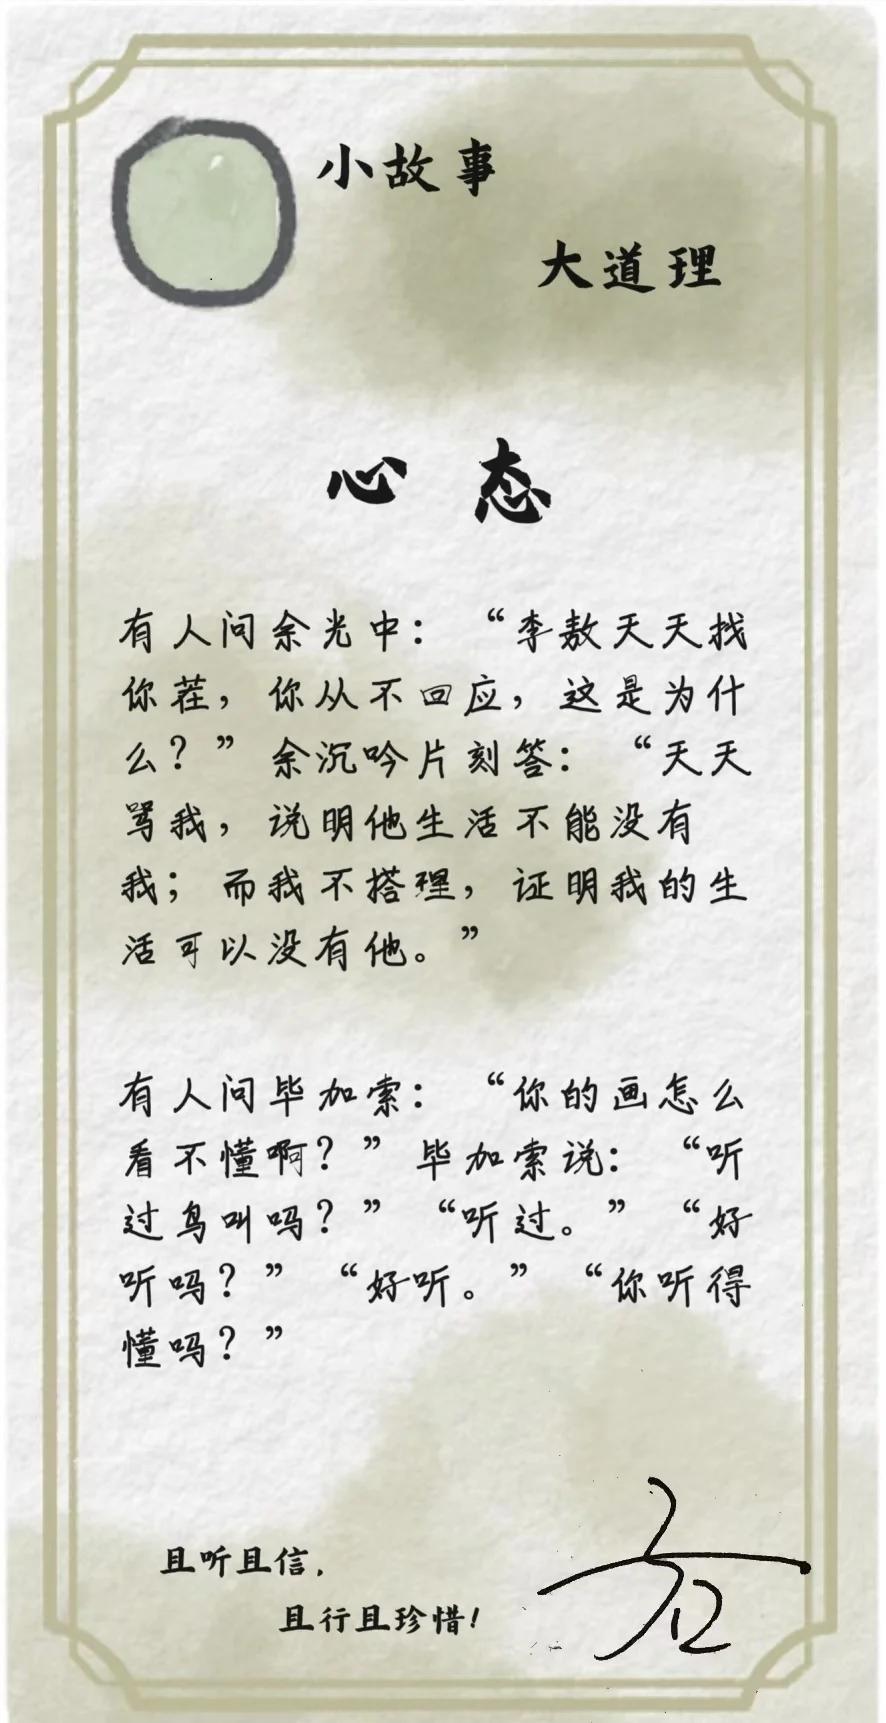 小故事
大道理
心态
有人问余光中：“李敖天天找
你茬，你从不回应，这是为什
么？”余沉吟片刻答：“天天
骂我，说明他生活不能没有
我；而我不搭理，证明我的生
活可以没有他。”
有人问毕加索：“你的画怎么
看不懂啊？”毕加索说：“听
过鸟叫吗？”“听过。”“好
听吗？”“好听。”“你听得
懂吗？”
且听且信，
且行且珍惜！